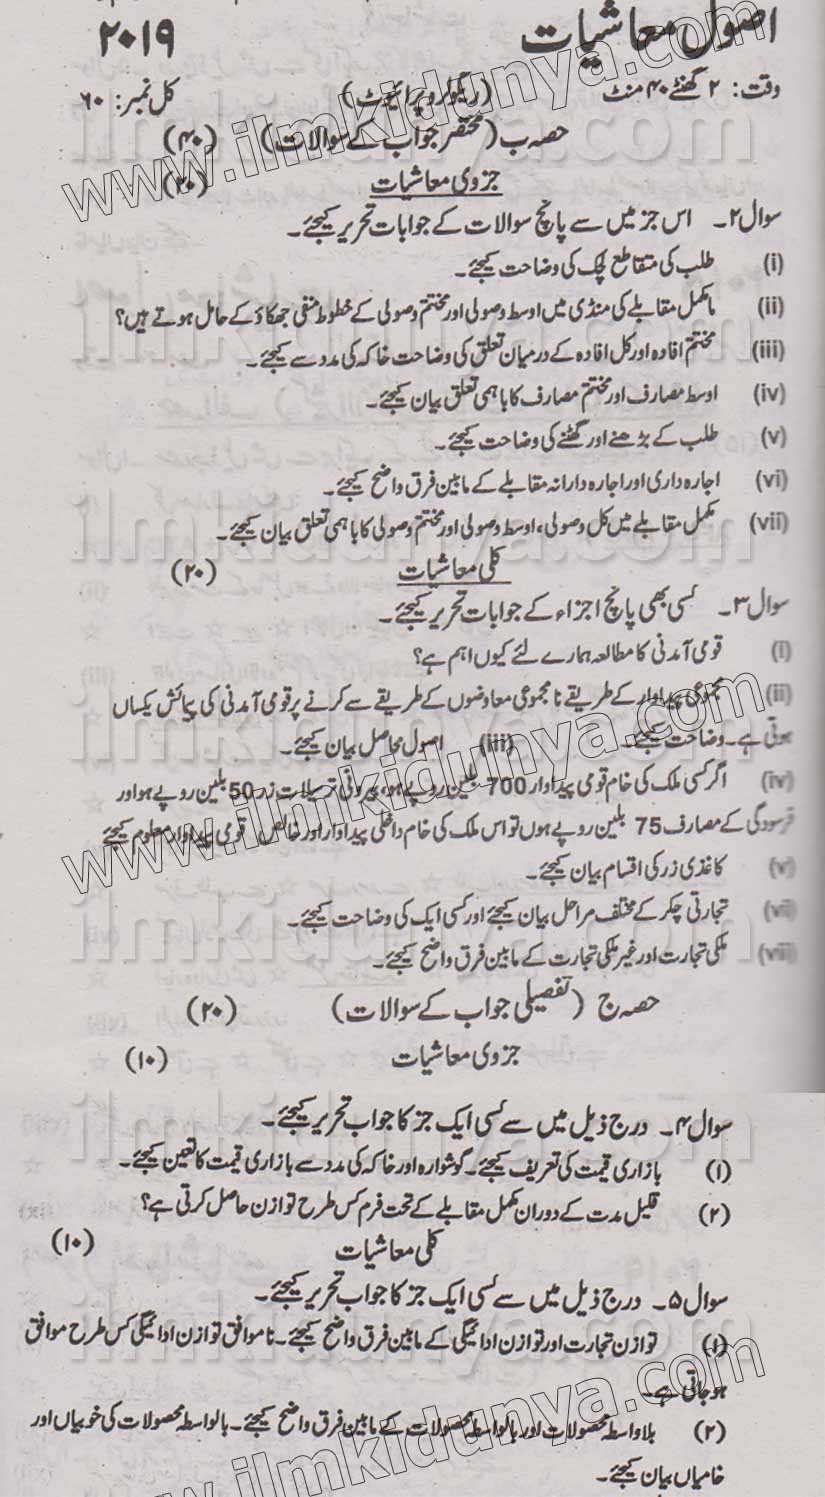 اصول معاشیات ۲۰۱۹
وقت: ۲ گھنٹے ۴۰ منٹ (ریگولر و پرائیوٹ) کل نمبر: ۶۰
حصہ ب (مختصر جواب کے سوالات) (۴۰)
جزوی معاشیات (۲۰)
سوال ۲۔ اس جز میں سے پانچ سوالات کے جوابات تحریر کیجئے۔
(i) طلب کی متقاطع لچک کی وضاحت کیجئے۔
(ii) نامکمل مقابلے کی منڈی میں اوسط وصولی اور مختتم وصولی کے خطوط منفی جھکاؤ کے حامل ہوتے ہیں؟
(iii) مختتم افادہ اور کل افادہ کے درمیان تعلق کی وضاحت خاکہ کی مدد سے کیجئے۔
(iv) اوسط مصارف اور مختتم مصارف کا باہمی تعلق بیان کیجئے۔
(v) طلب کے بڑھنے اور گھٹنے کی وضاحت کیجئے۔
(vi) اجارہ داری اور اجارہ دارانہ مقابلے کے مابین فرق واضح کیجئے۔
(vii) مکمل مقابلے میں کل وصولی، اوسط وصولی اور مختتم وصولی کا باہمی تعلق بیان کیجئے۔
کلی معاشیات (۲۰)
سوال ۳۔ کسی بھی پانچ اجزاء کے جوابات تحریر کیجئے۔
(i) قومی آمدنی کا مطالعہ ہمارے لئے کیوں اہم ہے؟
(ii) مجموعی پیداوار کے طریقے یا مجموعی معاوضوں کے طریقے سے کرنے پر قومی آمدنی کی پیمائش یکساں
ہوتی ہے۔ وضاحت کیجئے۔ (iii) اصول محاصل بیان کیجئے۔
(iv) اگر کسی ملک کی خام قومی پیداوار 700 بلین روپے ہو، بیرونی ترسیلات زر 50 بلین روپے ہو اور
فرسودگی کے مصارف 75 بلین روپے ہوں تو اس ملک کی خام داخلی پیداوار اور خالص قومی پیداوار معلوم کیجئے
(v) کاغذی زر کی اقسام بیان کیجئے۔
(vi) تجارتی چکر کے مختلف مراحل بیان کیجئے اور کسی ایک کی وضاحت کیجئے۔
(vii) ملکی تجارت اور غیر ملکی تجارت کے مابین فرق واضح کیجئے۔
حصہ ج (تفصیلی جواب کے سوالات) (۲۰)
جزوی معاشیات (۱۰)
سوال ۴۔ درج ذیل میں سے کسی ایک جز کا جواب تحریر کیجئے۔
(۱) بازاری قیمت کی تعریف کیجئے۔ گوشوارہ اور خاکہ کی مدد سے بازاری قیمت کا تعین کیجئے۔
(۲) قلیل مدت کے دوران مکمل مقابلے کے تحت فرم کس طرح توازن حاصل کرتی ہے؟
کلی معاشیات (۱۰)
سوال ۵۔ درج ذیل میں سے کسی ایک جز کا جواب تحریر کیجئے۔
(۱) توازن تجارت اور توازن ادائیگی کے مابین فرق واضح کیجئے۔ ناموافق توازن ادائیگی کس طرح موافق
ہو جاتی ہے۔
(۲) بلاواسطہ محصولات اور بالواسطہ محصولات کے مابین فرق واضح کیجئے۔ بالواسطہ محصولات کی خوبیاں اور
خامیاں بیان کیجئے۔
www.ilmkidunya.com
ilmkidunya.com